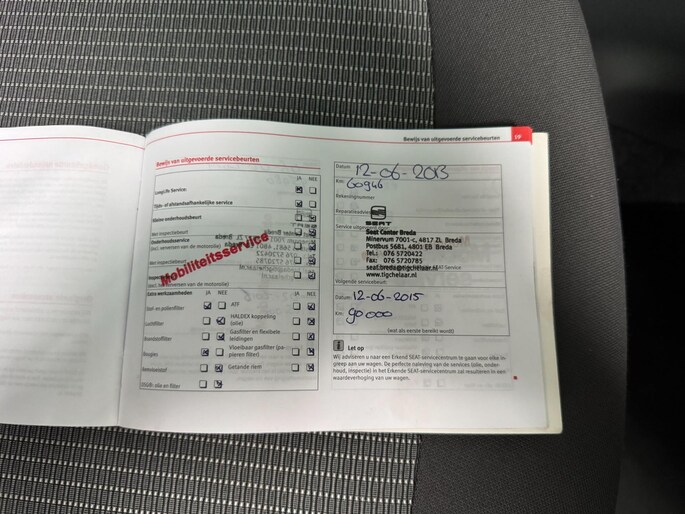 Bewijs van uitgevoerde servicebeurten
Bewijs van uitgevoerde servicebeurten
JA NEE
LongLife Service
Tijds- of afstandsafhankelijke service
Kleine onderhoudsbeurt
Met inspectiebeurt
Onderhoudsservice
(excl. verversen van de motorolie)
Met inspectiebeurt
Mobiliteitsservice
(excl. verversen van de motorolie)
Extra werkzaamheden JA NEE
JA NEE
Stof- en pollenfilter
ATF
Luchtfilter
HALDEX koppeling
(olie)
Brandstoffilter
Gasfilter en flexibele
leidingen
Bougies
Vloeibaar gasfilter (pa-
pieren filter)
Remvloeistof
Getande riem
olie en filter
Datum 12-06-2013
Km: 60946
Rekeningnummer
Reparatieadvies
SEAT
Service uitgevoerd door:
Seat Center Breda
Minervum 7001-c, 4817 ZL Breda
Postbus 5681, 4801 EB Breda
Tel.: 076 5720422
Fax: 076 5720785
seat.breda@tigchelaar.nl
www.tigchelaar.nl
Volgende servicebeurt:
Datum: 12-06-2015
Km: 90000
(wat als eerste bereikt wordt)
Let op
Wij adviseren u naar een Erkend SEAT-servicecentrum te gaan voor elke in-
greep aan uw wagen. De perfecte naleving van de services (olie, onder-
houd, inspectie) in het Erkende SEAT-servicecentrum zal resulteren in een
waardeverhoging van uw wagen.